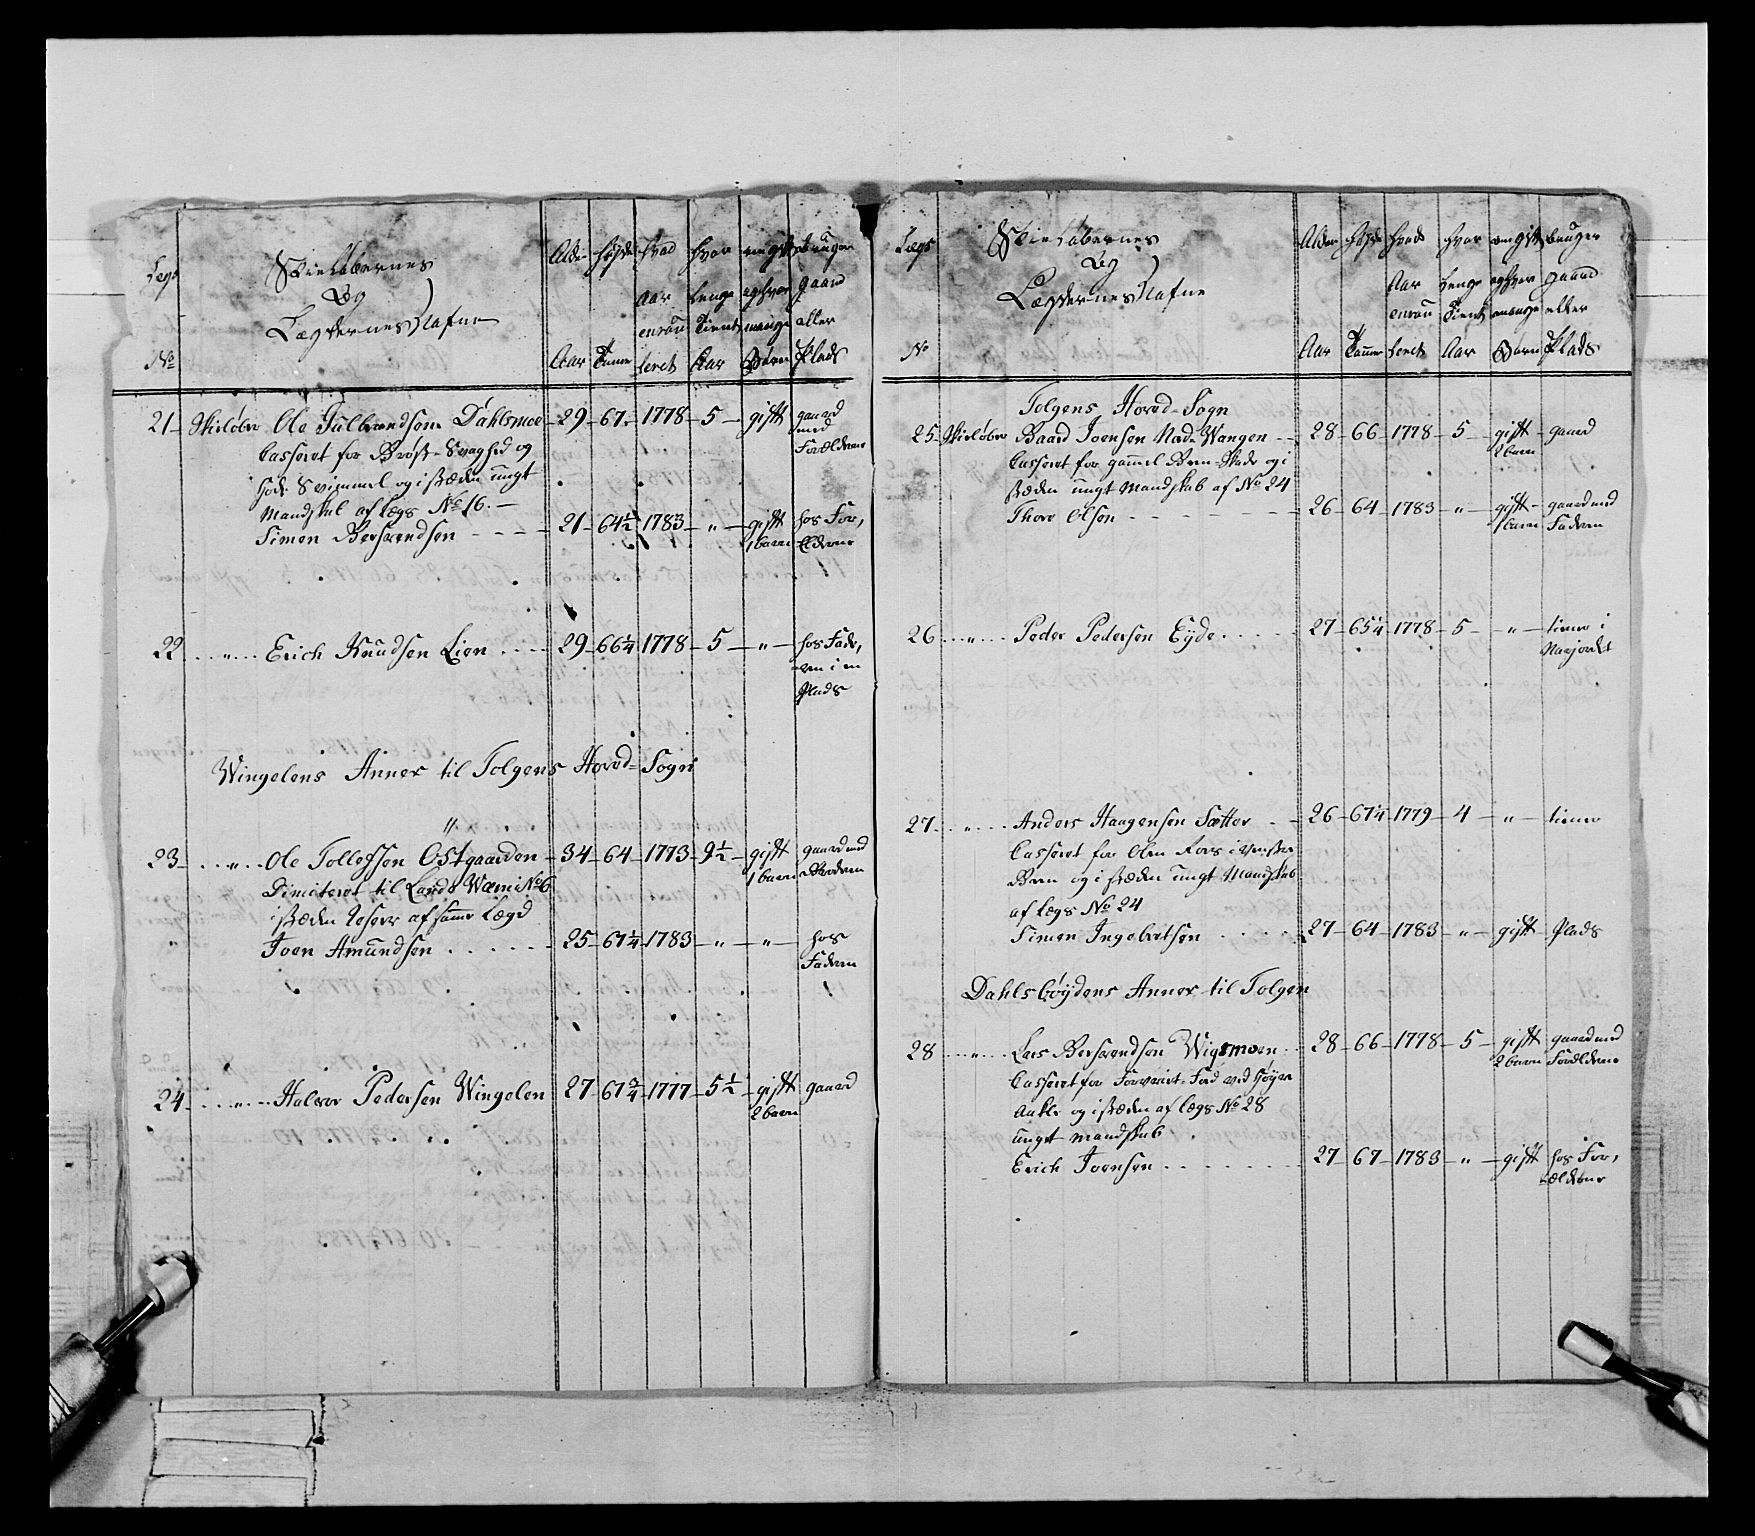 Legs No
Skieløbernes
Og
Lægdernes Nafne
Alder Aar
Høyde Tomer
Hvad Aar enrouleret
Hvor lenge Tient Aar
om gift og hvor mange Børn
bruger gaard eller Plads
21 Skieløber Ole Gulbrandsen Dahlsmoe 29 67 1778 5 gift gaard med Forældrene
Casseret for Bryst-Svaghed og
Svimmel og i stæden ungt
Mandskab af Legs No 16.
Simen Bersvendsen 21 64½ 1783 " gift 1 barn hos Forældrene
22 " Erich Knudsen Lien 29 66¼ 1778 5 " hos Faderen i en Plads
Wingelens Annex til Tolgens Hoved-Sogn
23 " Ole Tollefsen Østgaarden 34 64 1773 9½ gift 1 barn gaard med
Dimiteret til Lands No 6
i stæden af samme Lægd
Joen Amundsen 25 67¼ 1783 " " hos Faderen
24 " Halvor Pedersen Wingelen 27 67¾ 1777 5½ gift 2 barn gaard
Legs No
Skieløbernes
Og
Lægdernes Nafne
Alder Aar
Høyde Tomer
Hvad Aar enrouleret
Hvor lenge Tient Aar
om gift og hvor mange Børn
bruger gaard eller Plads
Tolgens Hoved-Sogn
25 Skieløber Baard Joensen Nord-Wangen 28 66 1778 5 gift 2 barn gaard
Casseret for gammel Been-Skade og i
stæden ungt Mandskab af No 24
Thore Olsen 26 64 1783 " gift 1 barn gaard med Faderen
26 " Peder Pedersen Eyde 27 65¼ 1778 5 " tiener i
27 " Anders Haagensen Sætter 26 67¼ 1779 4 " tiener
Casseret for i venstre
Been og i stæden ungt Mandskab
af Legs No 24
Simen Ingebretsen 27 64 1783 " gift Plads
Dahlsbøydens Annex til Tolgen
28 " Lars Bersvendsen Wigsmoen 28 66 1778 5 gift 2 barn gaard med Forældrene
Casseret for Forvreet Foed ved høyre
Ankle og i stæden af Legs No 28
ungt mandskab
Erich Joensen 27 67 1783 " gift hos Forældrene